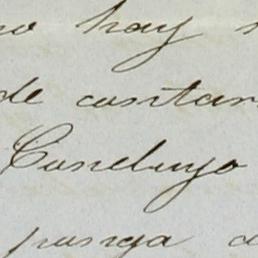 no hay
de contar
Concluyo
ponga